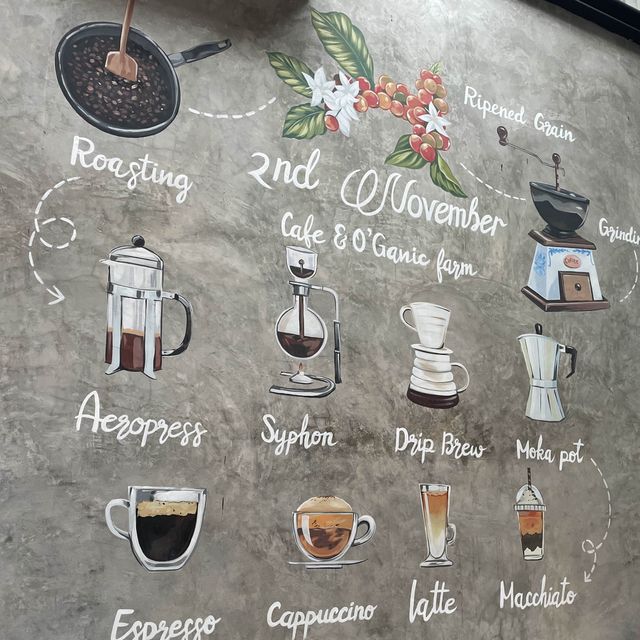 Ripened Grain
Roasting
2nd November
Cafe & O'Ganic farm
Aeropress
Syphon
Drip Brew
Moka pot
Espresso
Cappuccino
latte
Macchiato